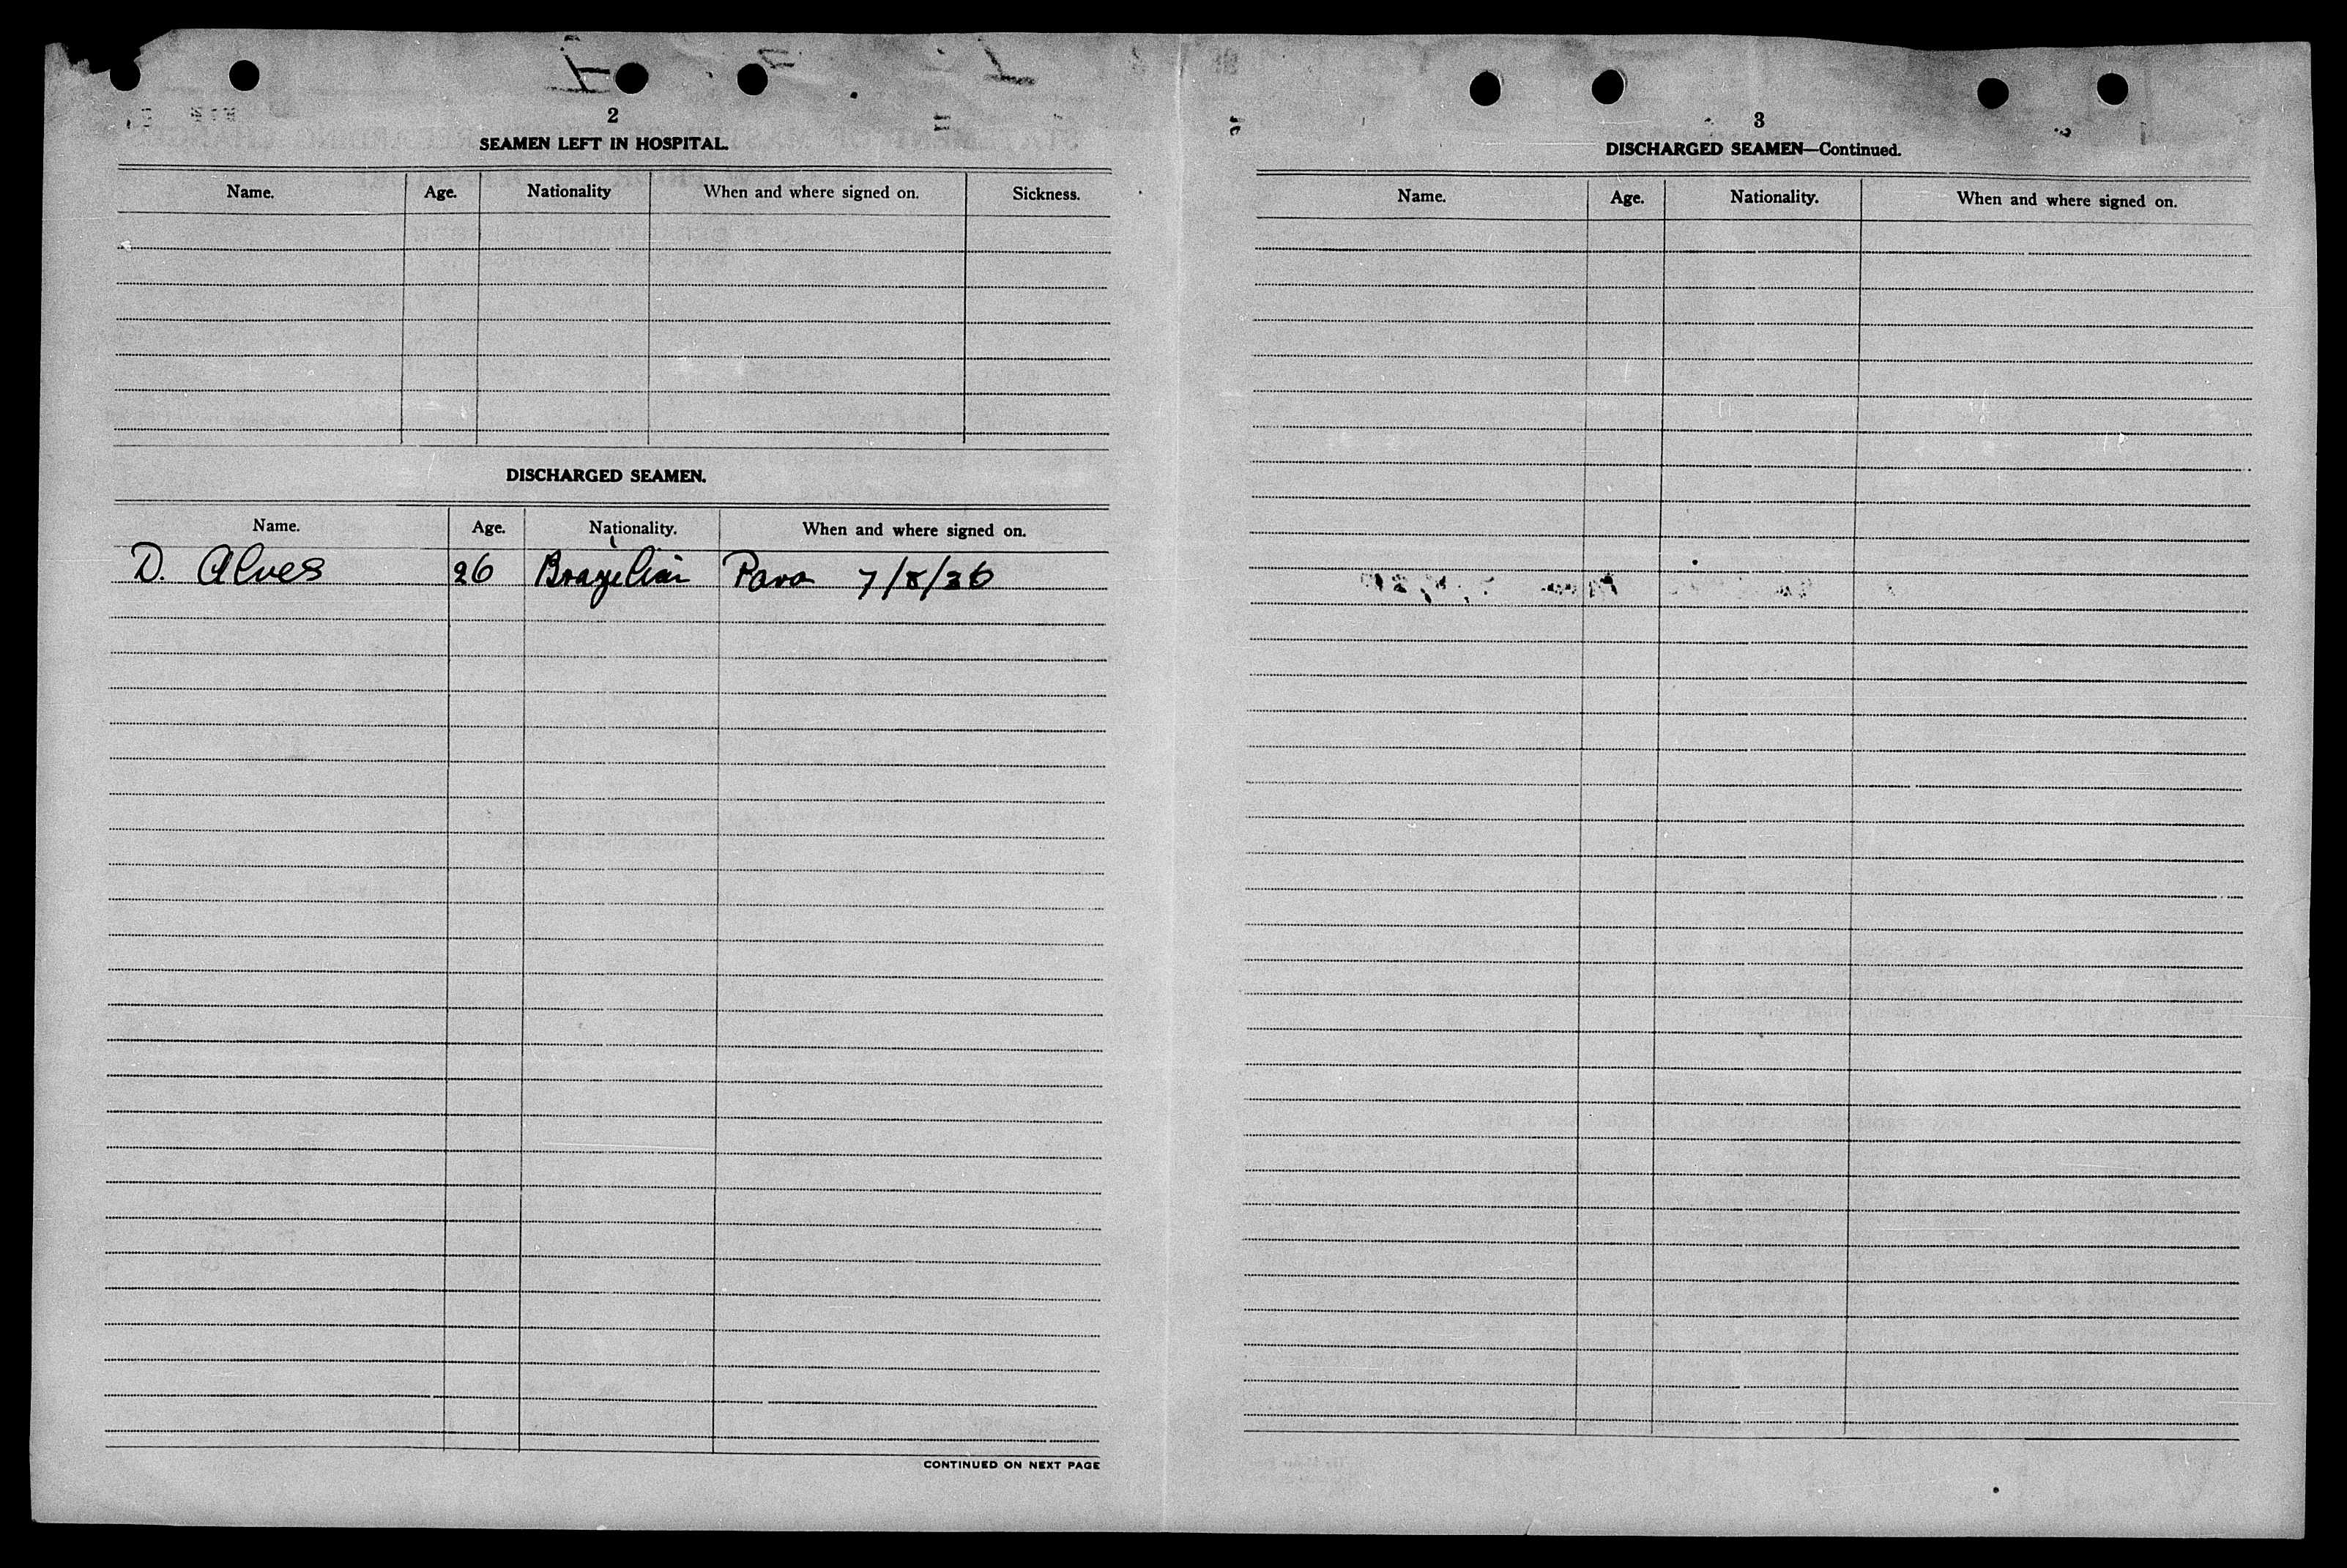 2
SEAMEN LEFT IN HOSPITAL.
Name. Age. Nationality When and where signed on. Sickness.
DISCHARGED SEAMEN.
Name. Age. Nationality. When and where signed on.
D. Alves 26 Brazilian Para 7/8/26
CONTINUED ON NEXT PAGE
3
DISCHARGED SEAMEN—Continued.
Name. Age. Nationality. When and where signed on.